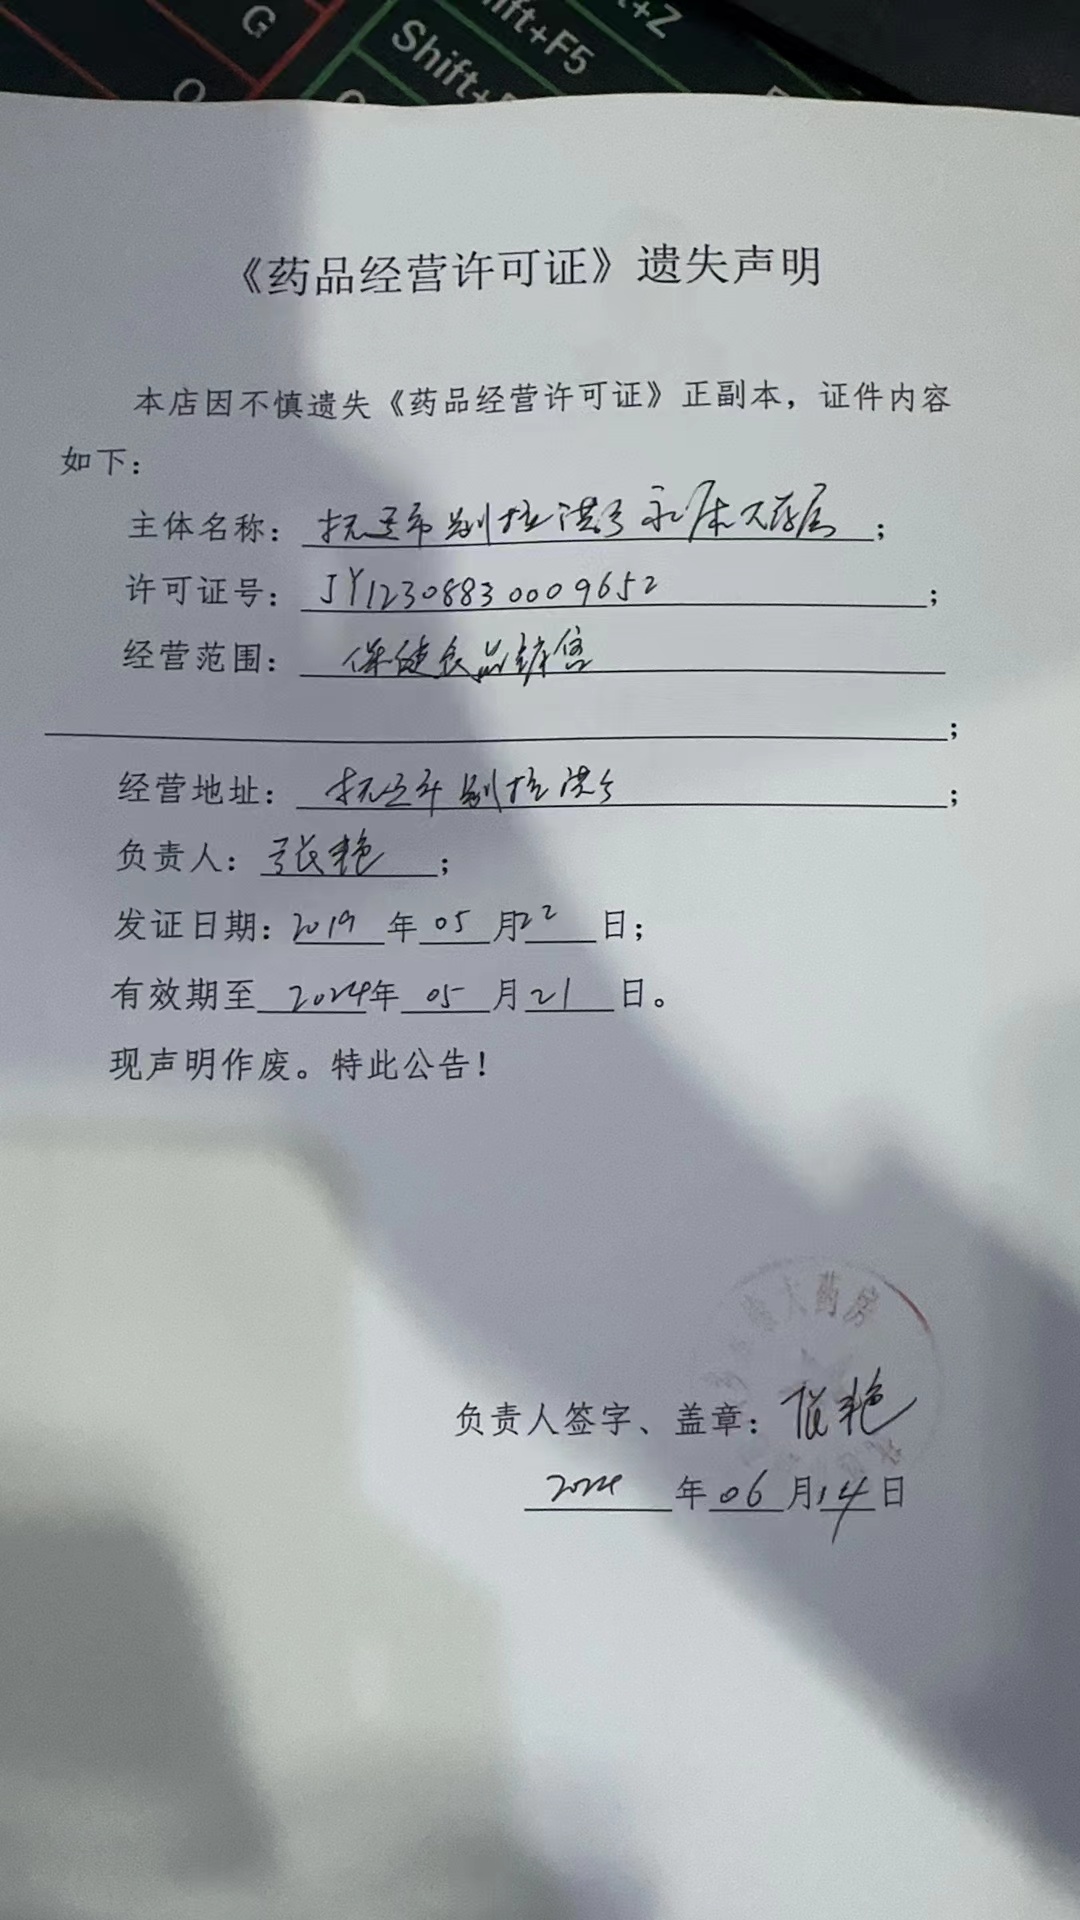 G
Shift+F5
Shift+
t+Z
O
《药品经营许可证》遗失声明
本店因不慎遗失《药品经营许可证》正副本，证件内容
如下：
主体名称：抚远市别拉洪乡永康大药房；
许可证号：JY12308830009652；
经营范围：保健食品销售
；
经营地址：抚远市别拉洪乡；
负责人：张艳；
发证日期：2019年05月22日；
有效期至2024年05月21日。
现声明作废。特此公告！
大药房
负责人签字、盖章：张艳
2024年06月14日